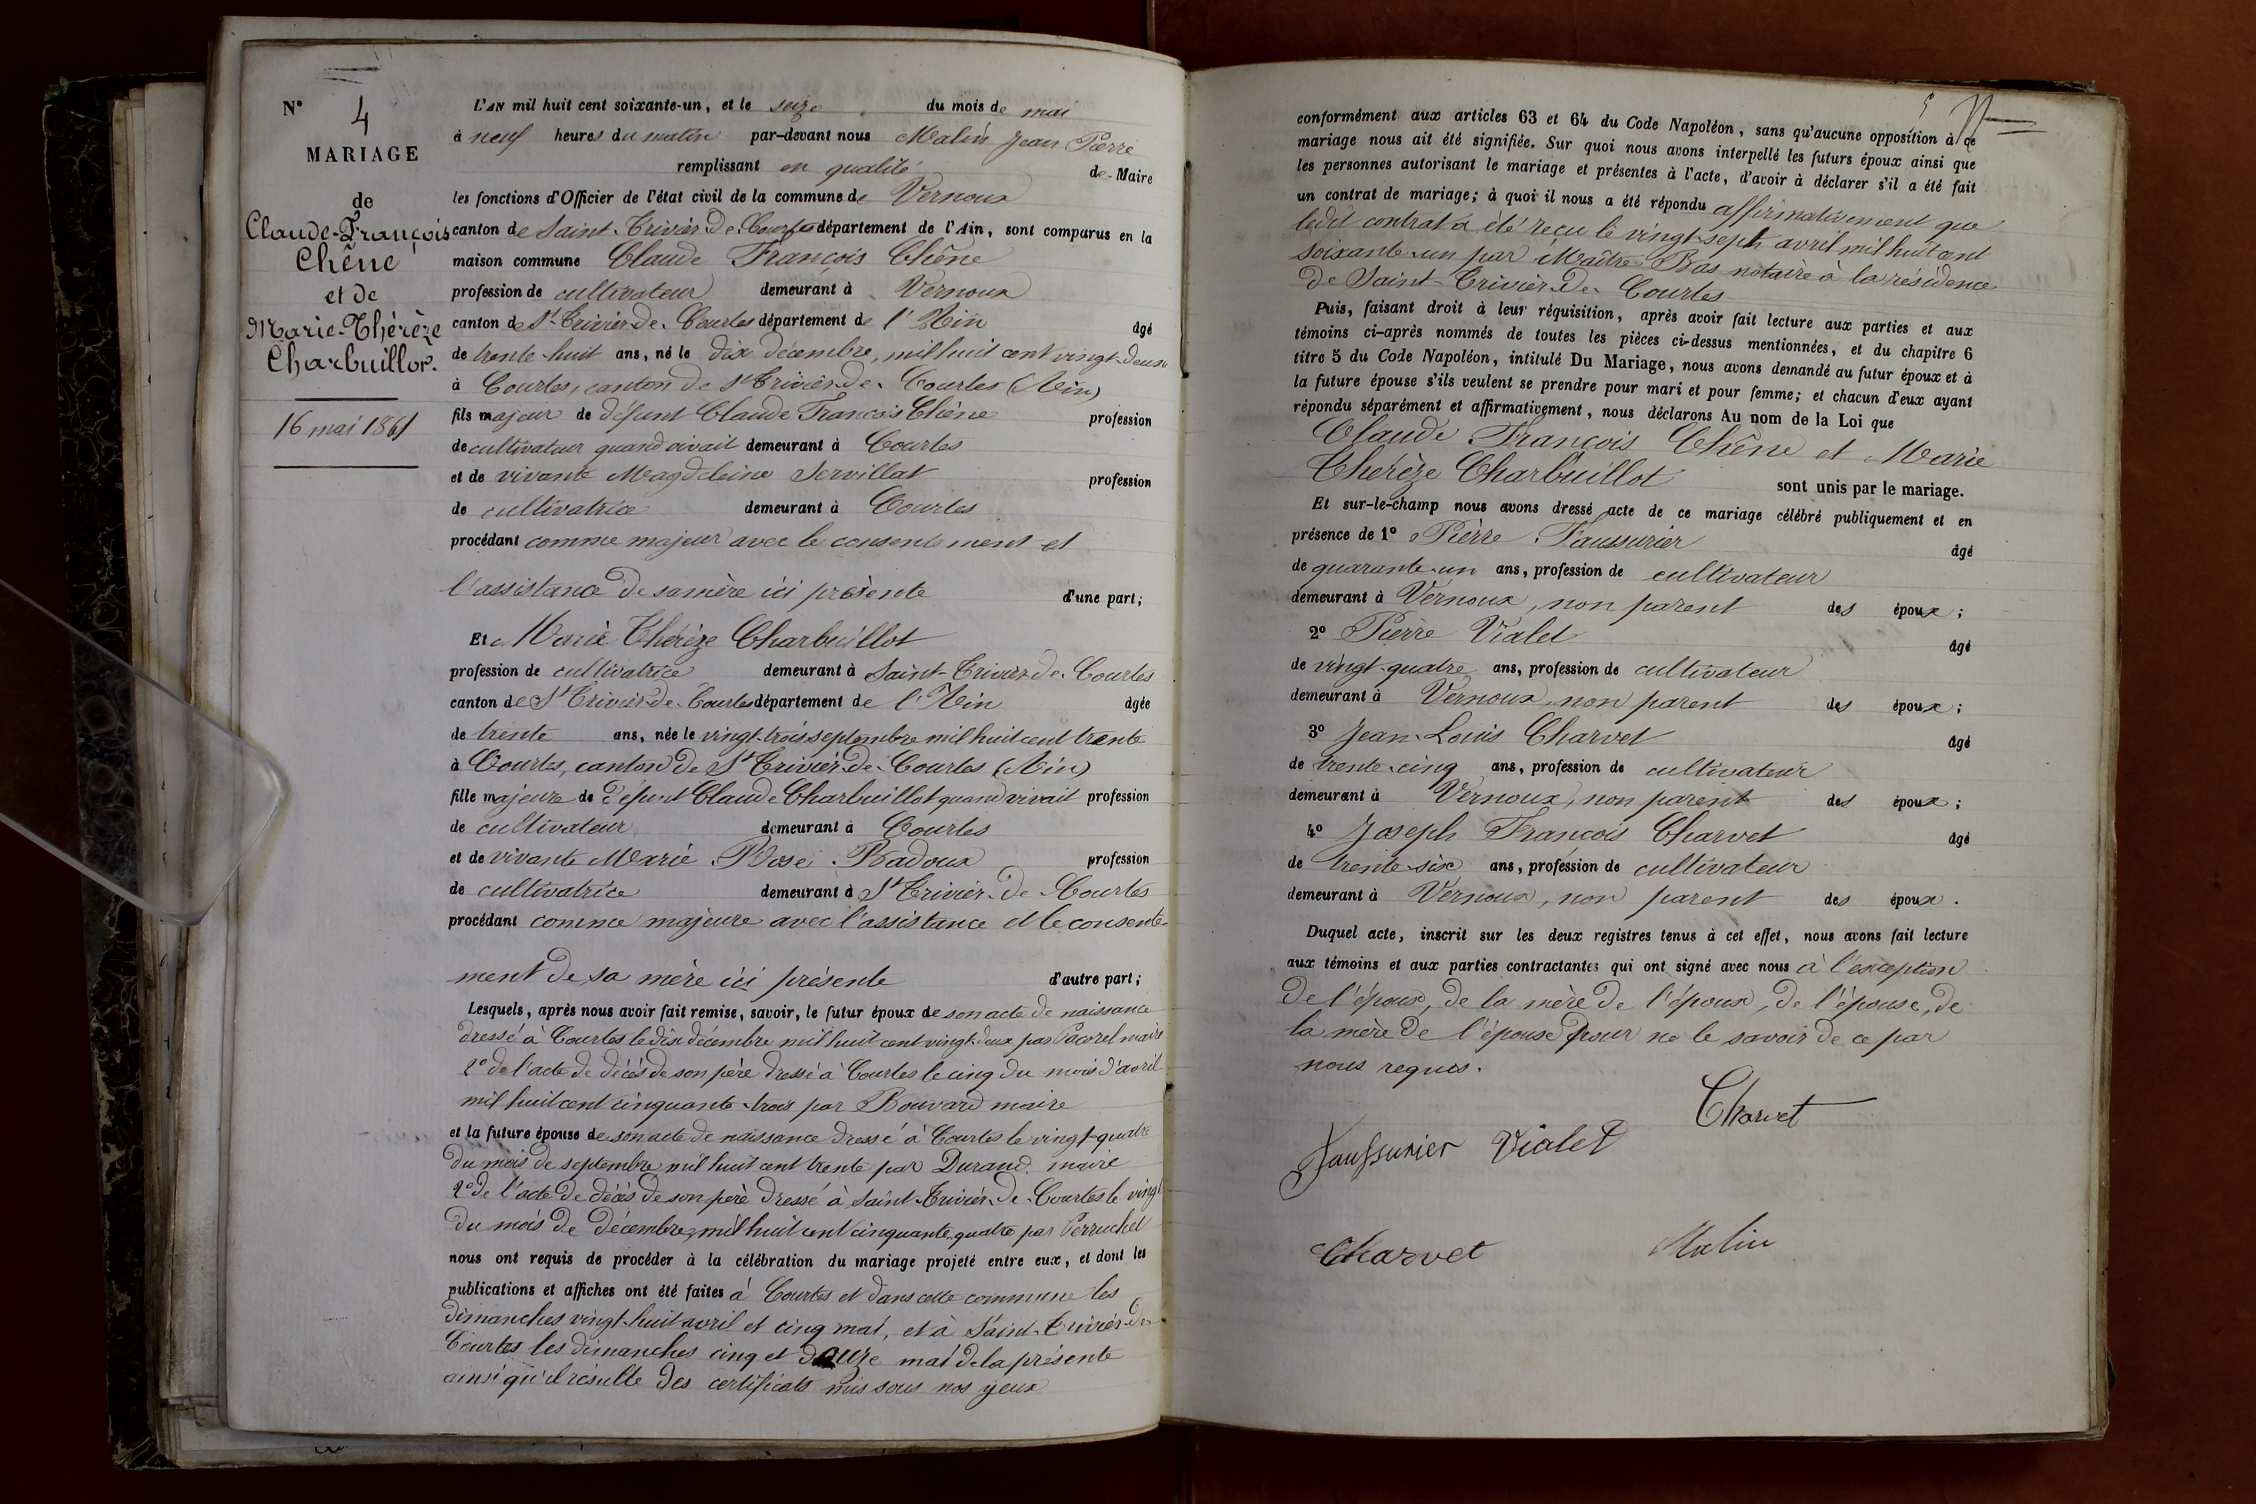 N° 4
MARIAGE
de
Claude-François
Chêne
et de
Marie-Thérèze
Charbuillot.
16 mai 1861
L'AN mil huit cent soixante-un, et le seize du mois de mai
à neuf heures du matin par-devant nous Malin Jean Pierre
remplissant en qualité de Maire
les fonctions d'Officier de l'état civil de la commune de Vernoux
canton de Saint-Trivier-de-Courtes département de l'Ain, sont comparus en la
maison commune Claude François Chêne
profession de cultivateur demeurant à Vernoux
canton de St Trivier-de-Courtes département de l'Ain âgé
de trente-huit ans, né le dix décembre, mil huit cent vingt-deux
à Courtes, canton de St Trivier-de-Courtes (Ain)
fils majeur de défunt Claude François Chêne profession
de cultivateur quand vivait demeurant à Courtes
et de vivante Magdeleine Servillat profession
de cultivatrice demeurant à Courtes
procédant comme majeur avec le consentement et
l'assistance de sa mère ici présente d'une part;
Et Marie Thérèze Charbuillot
profession de cultivatrice demeurant à Saint-Trivier-de-Courtes
canton de St Trivier-de-Courtes département de l'Ain âgée
de trente ans, née le vingt-trois septembre mil huit cent trente
à Courtes, canton de St Trivier-de-Courtes (Ain)
fille majeure de défunt Claude Charbuillot quand vivait profession
de cultivateur demeurant à Courtes
et de vivante Marie Rose Radoux profession
de cultivatrice demeurant à St Trivier-de-Courtes
procédant comme majeure avec l'assistance et le consente-
ment de sa mère ici présente d'autre part;
Lesquels, après nous avoir fait remise, savoir, le futur époux de son acte de naissance
dressé à Courtes le dix décembre mil huit cent vingt-deux par Pacorel maire
2° de l'acte de décès de son père dressé à Courtes le cinq du mois d'avril
mil huit cent cinquante-trois par Bouvard maire
et la future épouse de son acte de naissance dressé à Courtes le vingt-quatre
du mois de septembre mil huit cent trente par Durand maire
2° de l'acte de décès de son père dressé à Saint-Trivier-de-Courtes le vingt
du mois de décembre mil huit cent cinquante quatre par Perruchet
nous ont requis de procéder à la célébration du mariage projeté entre eux, et dont les
publications et affiches ont été faites à Courtes et dans cette commune les
dimanches vingt-huit avril et cinq mai, et à Saint-Trivier-de
Courtes les dimanches cinq et douze mai de la présente
ainsi qu'il résulte des certificats mis sous nos yeux
5
conformément aux articles 63 et 64 du Code Napoléon, sans qu'aucune opposition à ce
mariage nous ait été signifiée. Sur quoi nous avons interpellé les futurs époux ainsi que
les personnes autorisant le mariage et présentes à l'acte, d'avoir à déclarer s'il a été fait
un contrat de mariage; à quoi il nous a été répondu affirmativement que
ledit contrat a été reçu le vingt-sept avril mil huit cent
soixante-un par Maître Bas notaire à la résidence
de Saint-Trivier-de-Courtes
Puis, faisant droit à leur réquisition, après avoir fait lecture aux parties et aux
témoins ci-après nommés de toutes les pièces ci-dessus mentionnées, et du chapitre 6
titre 5 du Code Napoléon, intitulé Du Mariage, nous avons demandé au futur époux et à
la future épouse s'ils veulent se prendre pour mari et pour femme; et chacun d'eux ayant
répondu séparément et affirmativement, nous déclarons Au nom de la Loi que
Claude François Chêne et Marie
Thérèze Charbuillot sont unis par le mariage.
Et sur-le-champ nous avons dressé acte de ce mariage célébré publiquement et en
présence de 1° Pierre Faussurier âgé
de quarante-un ans, profession de cultivateur
demeurant à Vernoux, non parent des époux;
2° Pierre Vialet âgé
de vingt-quatre ans, profession de cultivateur
demeurant à Vernoux, non parent des époux;
3° Jean-Louis Charvet âgé
de trente-cinq ans, profession de cultivateur
demeurant à Vernoux, non parent des époux;
4° Joseph François Charvet âgé
de trente-six ans, profession de cultivateur
demeurant à Vernoux, non parent des époux.
Duquel acte, inscrit sur les deux registres tenus à cet effet, nous avons fait lecture
aux témoins et aux parties contractantes qui ont signé avec nous à l'exception
de l'époux, de la mère de l'époux, de l'épouse, de
la mère de l'épouse pour ne le savoir de ce par
nous requis.
Charvet
Faussurier Vialet
Charvet Malin